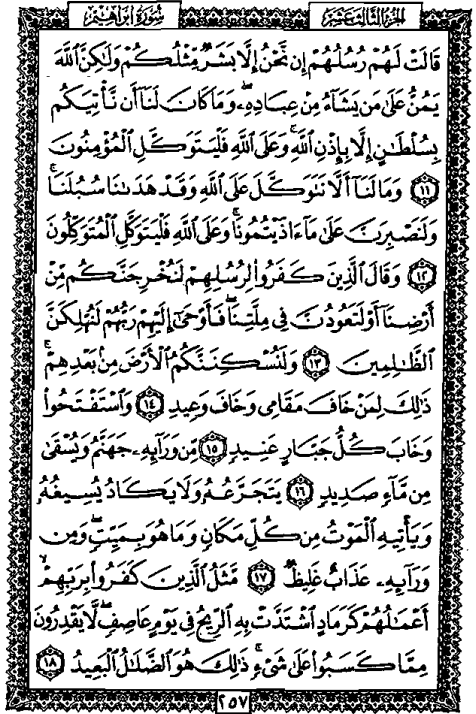 سُورَةُ إِبْرَاهِيمَ
الجُزْءُ الثَّالِثَ عَشَرَ
قَالَتْ لَهُمْ رُسُلُهُمْ إِن نَّحْنُ إِلَّا بَشَرٌ مِّثْلُكُمْ وَلَٰكِنَّ ٱللَّهَ
يَمُنُّ عَلَىٰ مَن يَشَآءُ مِنْ عِبَادِهِۦ ۖ وَمَا كَانَ لَنَآ أَن نَّأْتِيَكُم
بِسُلْطَٰنٍ إِلَّا بِإِذْنِ ٱللَّهِ ۚ وَعَلَى ٱللَّهِ فَلْيَتَوَكَّلِ ٱلْمُؤْمِنُونَ
١١ وَمَا لَنَآ أَلَّا نَتَوَكَّلَ عَلَى ٱللَّهِ وَقَدْ هَدَىٰنَا سُبُلَنَا ۚ
وَلَنَصْبِرَنَّ عَلَىٰ مَآ ءَاذَيْتُمُونَا ۚ وَعَلَى ٱللَّهِ فَلْيَتَوَكَّلِ ٱلْمُتَوَكِّلُونَ
١٢ وَقَالَ ٱلَّذِينَ كَفَرُوا۟ لِرُسُلِهِمْ لَنُخْرِجَنَّكُم مِّنْ
أَرْضِنَآ أَوْ لَتَعُودُنَّ فِى مِلَّتِنَا ۖ فَأَوْحَىٰٓ إِلَيْهِمْ رَبُّهُمْ لَنُهْلِكَنَّ
ٱلظَّٰلِمِينَ ١٣ وَلَنُسْكِنَنَّكُمُ ٱلْأَرْضَ مِنۢ بَعْدِهِمْ ۚ
ذَٰلِكَ لِمَنْ خَافَ مَقَامِى وَخَافَ وَعِيدِ ١٤ وَٱسْتَفْتَحُوا۟
وَخَابَ كُلُّ جَبَّارٍ عَنِيدٍ ١٥ مِّن وَرَآئِهِۦ جَهَنَّمُ وَيُسْقَىٰ
مِن مَّآءٍ صَدِيدٍ ١٦ يَتَجَرَّعُهُۥ وَلَا يَكَادُ يُسِيغُهُۥ
وَيَأْتِيهِ ٱلْمَوْتُ مِن كُلِّ مَكَانٍ وَمَا هُوَ بِمَيِّتٍ ۖ وَمِن
وَرَآئِهِۦ عَذَابٌ غَلِيظٌ ١٧ مَّثَلُ ٱلَّذِينَ كَفَرُوا۟ بِرَبِّهِمْ ۖ
أَعْمَٰلُهُمْ كَرَمَادٍ ٱشْتَدَّتْ بِهِ ٱلرِّيحُ فِى يَوْمٍ عَاصِفٍ ۖ لَّا يَقْدِرُونَ
مِمَّا كَسَبُوا۟ عَلَىٰ شَىْءٍ ۚ ذَٰلِكَ هُوَ ٱلضَّلَٰلُ ٱلْبَعِيدُ ١٨
٢٥٧